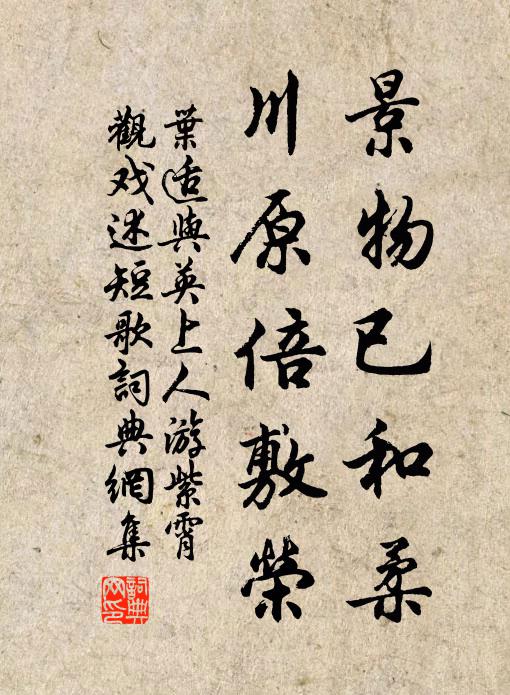 景物已和柔
川原倍敷榮
葉适與英上人游紫霄
觀戏述短歌詞典網集
詞典网印